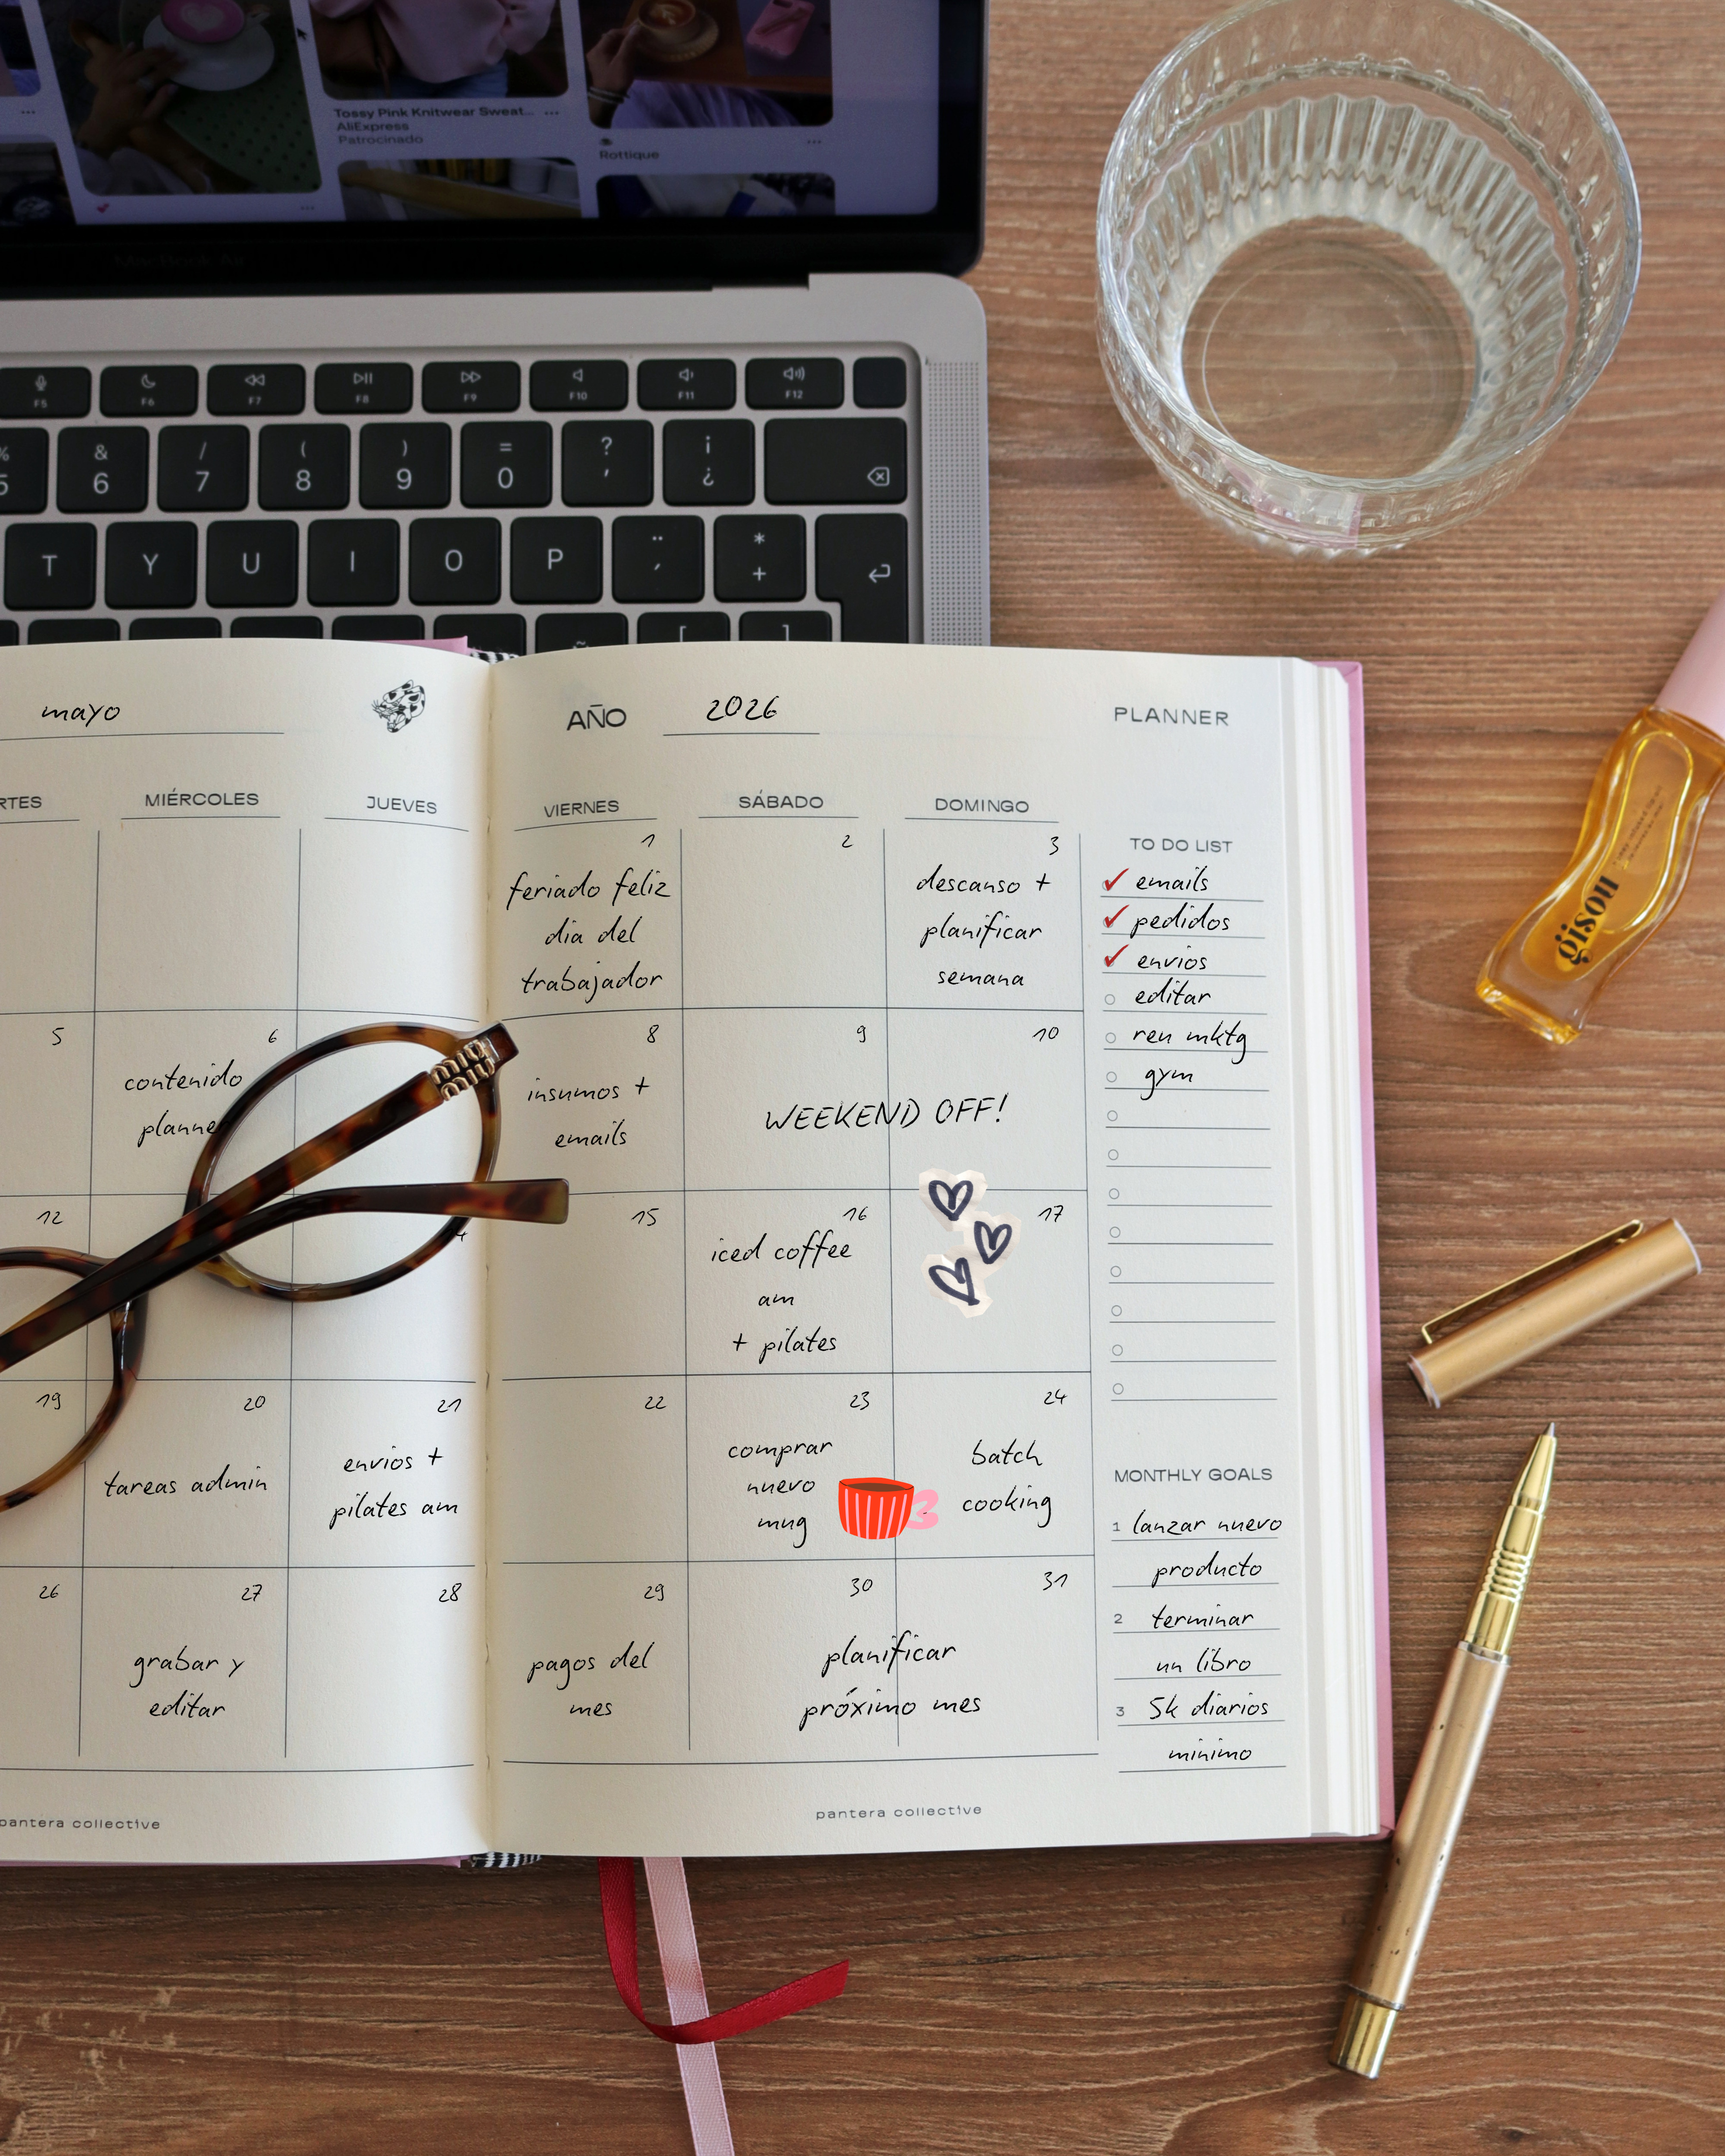 Tossy Pink Knitwear Sweat...
AliExpress
Patrocinado
Rottique
MacBook Air
F5
F6
F7
F8
F9
F10
F11
F12
%
5
&
6
/
7
(
8
)
9
=
0
?
'
¡
¿
T
Y
U
I
O
P
¨
´
*
+
[
]
mayo
AÑO 2026
PLANNER
RTES
MIÉRCOLES
JUEVES
VIERNES
SÁBADO
DOMINGO
1
feriado feliz
dia del
trabajador
2
3
descanso +
planificar
semana
5
6
contenido
planner
8
insumos +
emails
9
10
WEEKEND OFF!
12
15
16
iced coffee
am
+ pilates
17
19
20
tareas admin
21
envios +
pilates am
22
23
comprar
nuevo
mug
24
batch
cooking
26
27
grabar y
editar
28
29
pagos del
mes
30
31
planificar
próximo mes
TO DO LIST
emails
pedidos
envios
editar
reu mktg
gym
MONTHLY GOALS
1 lanzar nuevo
producto
2 terminar
un libro
3 5k diarios
minimo
pantera collective
pantera collective
miu
miu
gisou